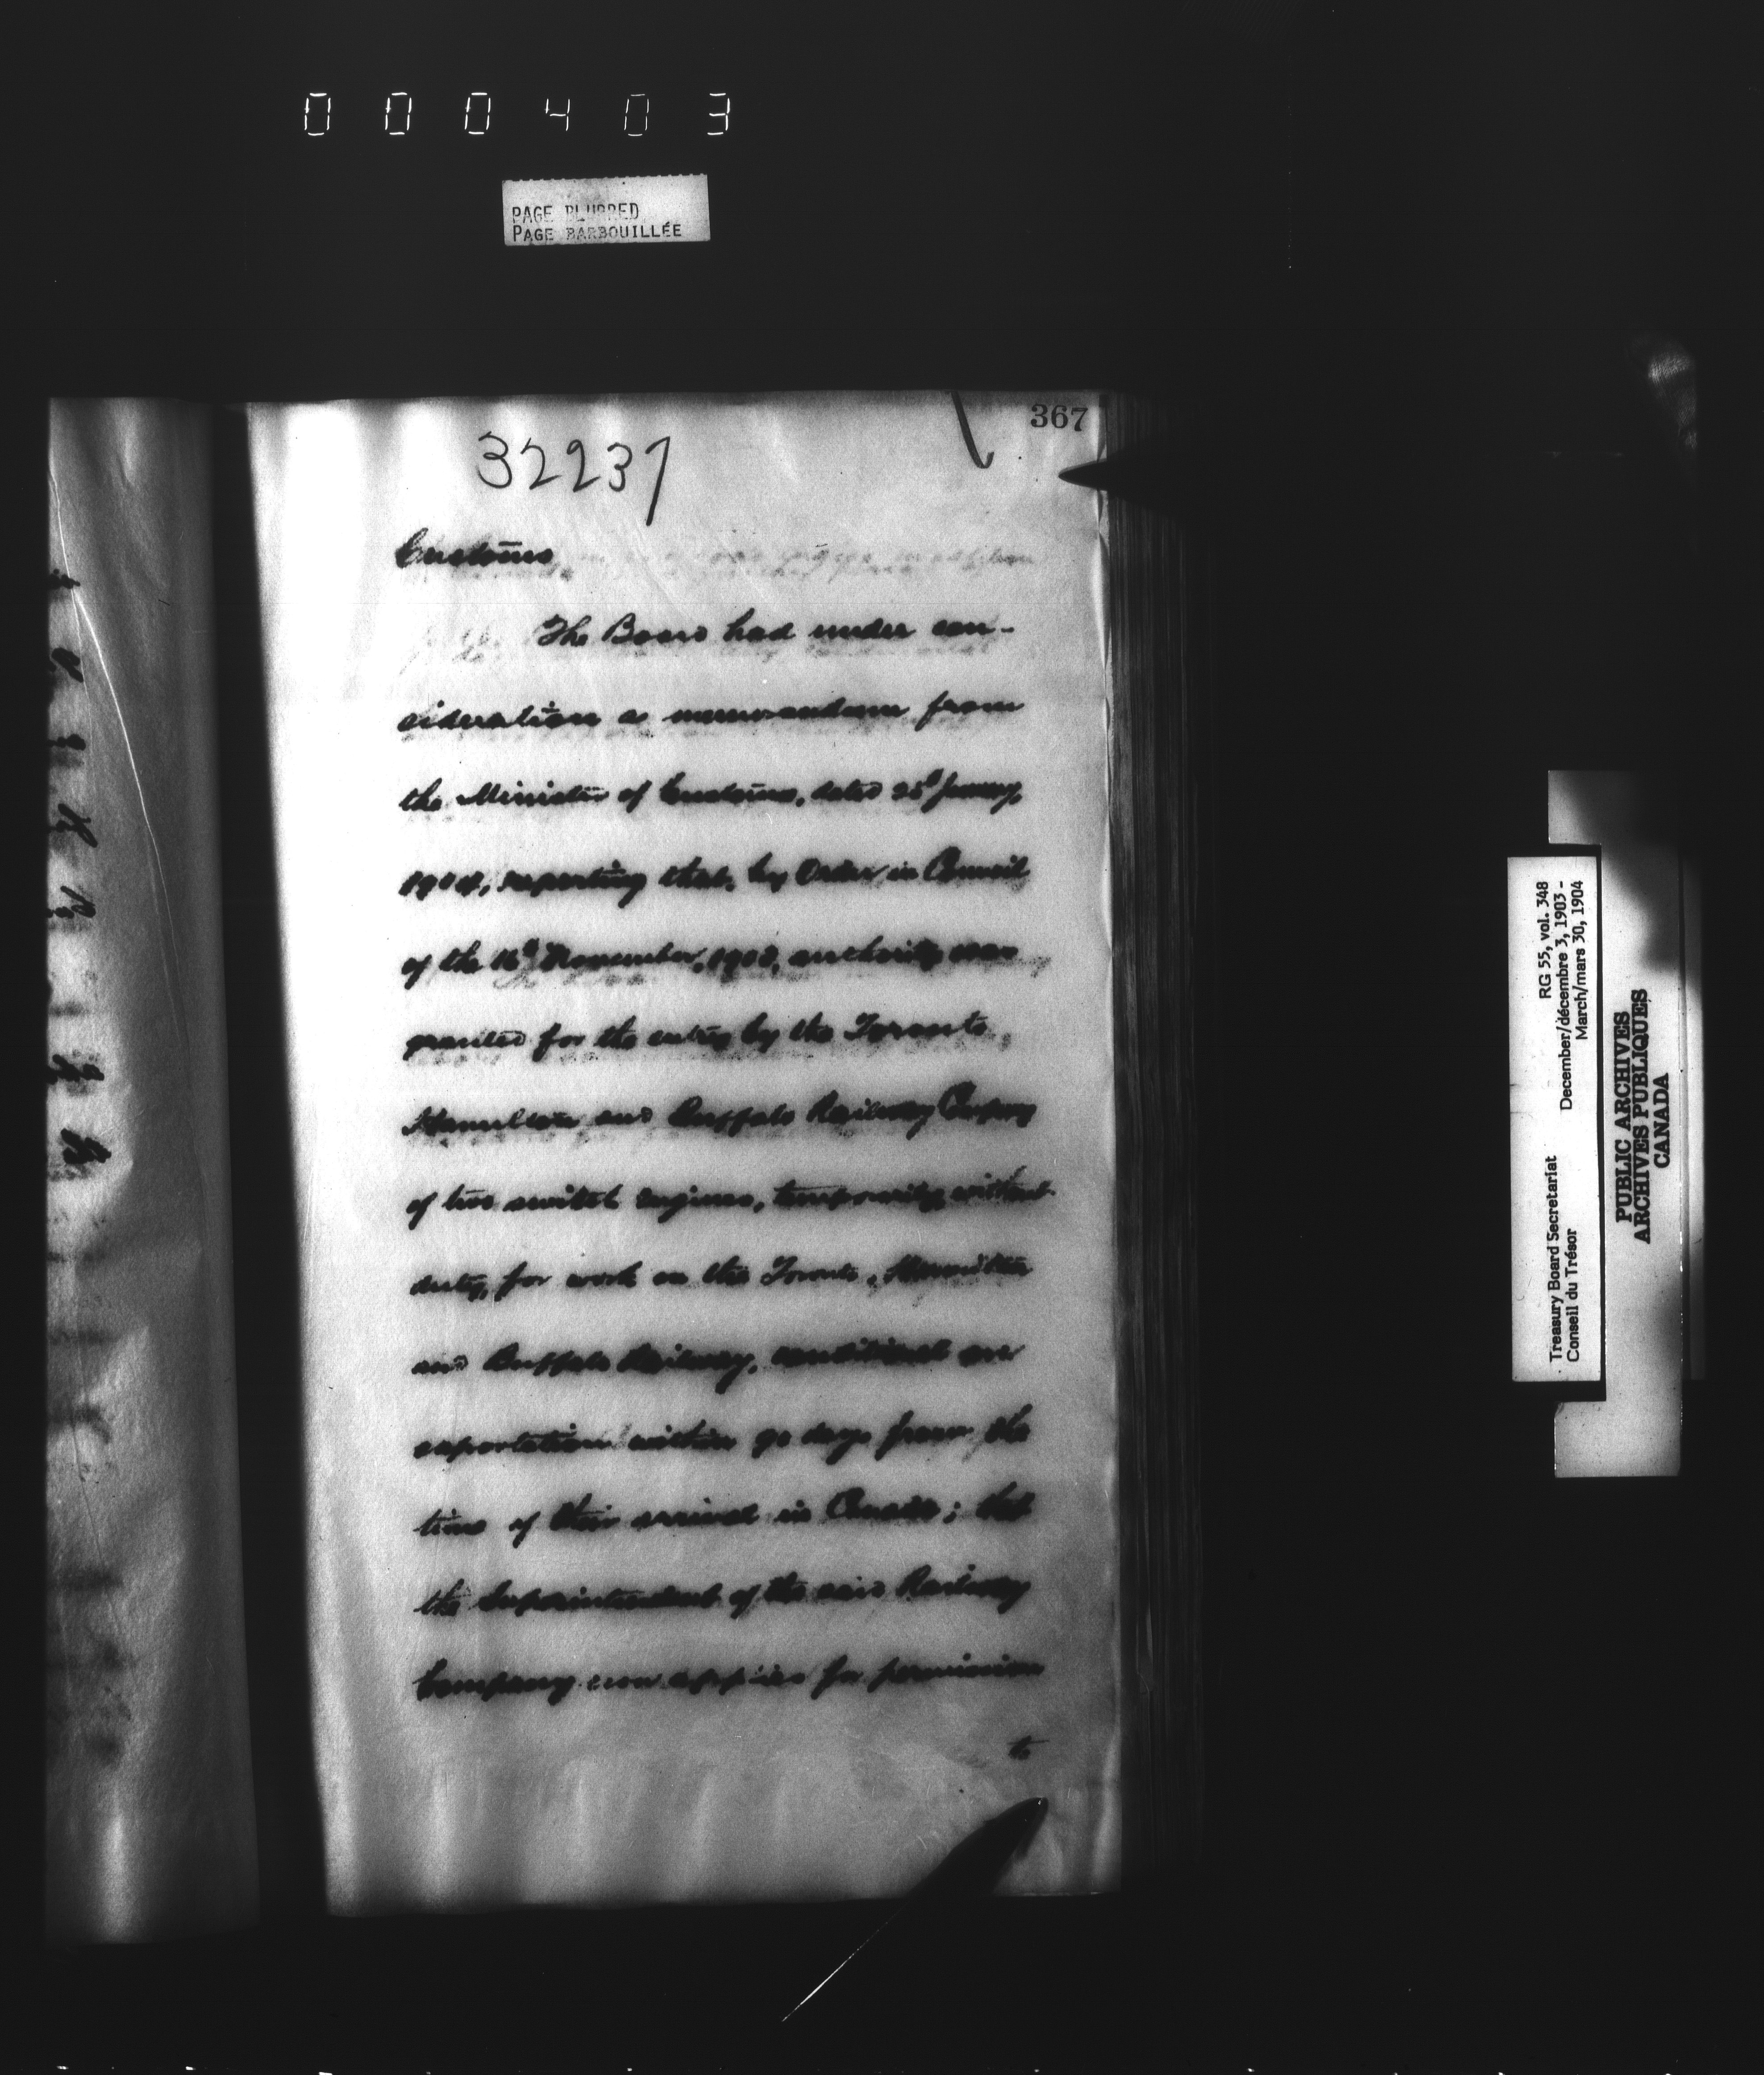 000403
PAGE BLURRED
PAGE BARBOUILLÉE
367
32237
Customs
The Board had under con-
sideration a memorandum from
the Minister of Customs, dated 25th January,
1904, reporting that, by Order in Council
of the 16th November, 1903, authority was
granted for the entry by the Toronto,
Hamilton and Buffalo Railway Company
of two switch engines, temporarily, without
duty, for work on the Toronto, Hamilton
and Buffalo Railway, conditional on
exportation within 90 days from the
time of their arrival in Canada; that
the Superintendent of the said Railway
Company now applies for permission
to
Treasury Board Secretariat RG 55, vol. 348
Conseil du Trésor December/décembre 3, 1903 -
March/mars 30, 1904
PUBLIC ARCHIVES
ARCHIVES PUBLIQUES
CANADA